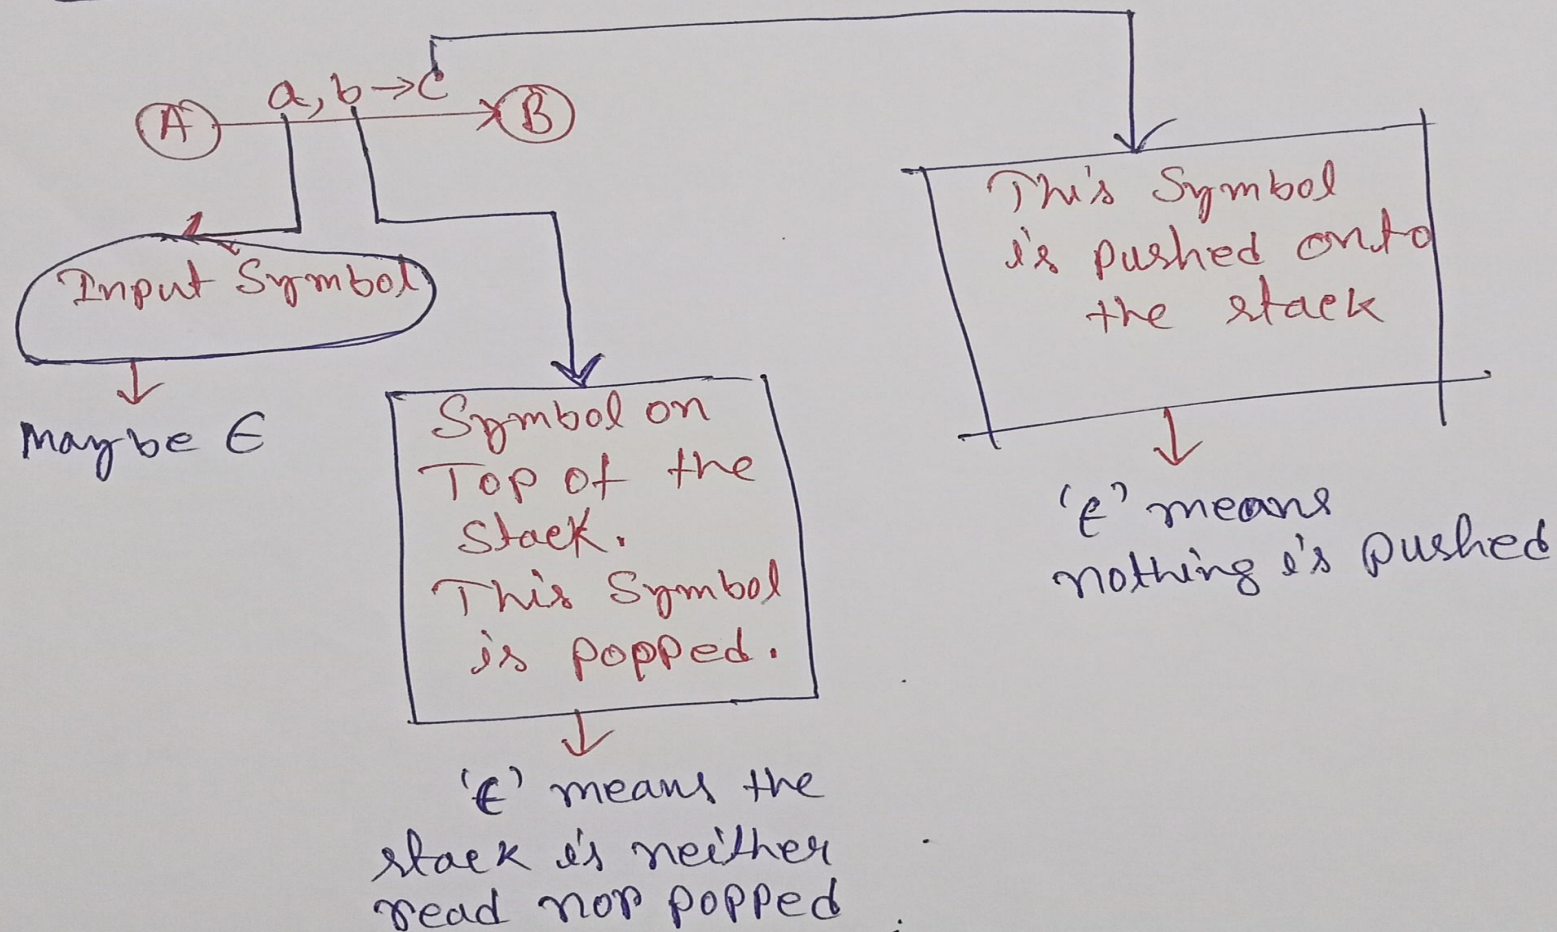 a, b → c
A
B
Input Symbol
May be ϵ
Symbol on
Top of the
Stack.
This Symbol
is popped.
'ϵ' means the
stack is neither
read nor popped
This Symbol
is pushed onto
the stack
'ϵ' means
nothing is pushed